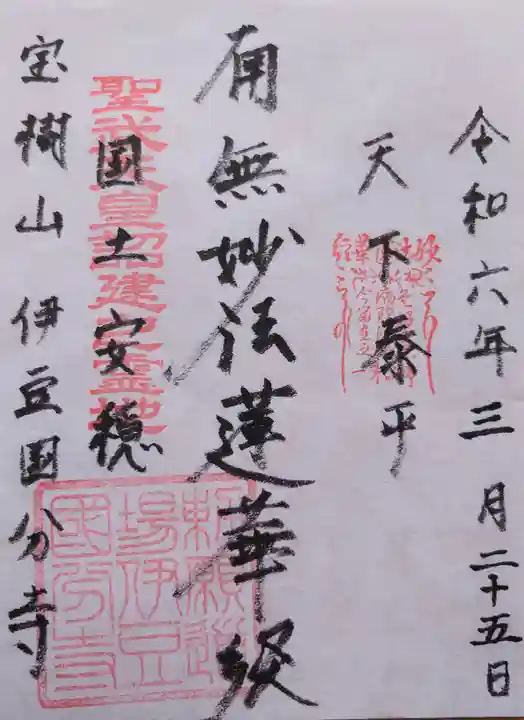 令和六年三月二十五日
天下泰平
南無妙法蓮華経
国土安穏
聖武天皇詔建之霊地
勅願道
場伊豆
國分寺
宝樹山 伊豆国分寺